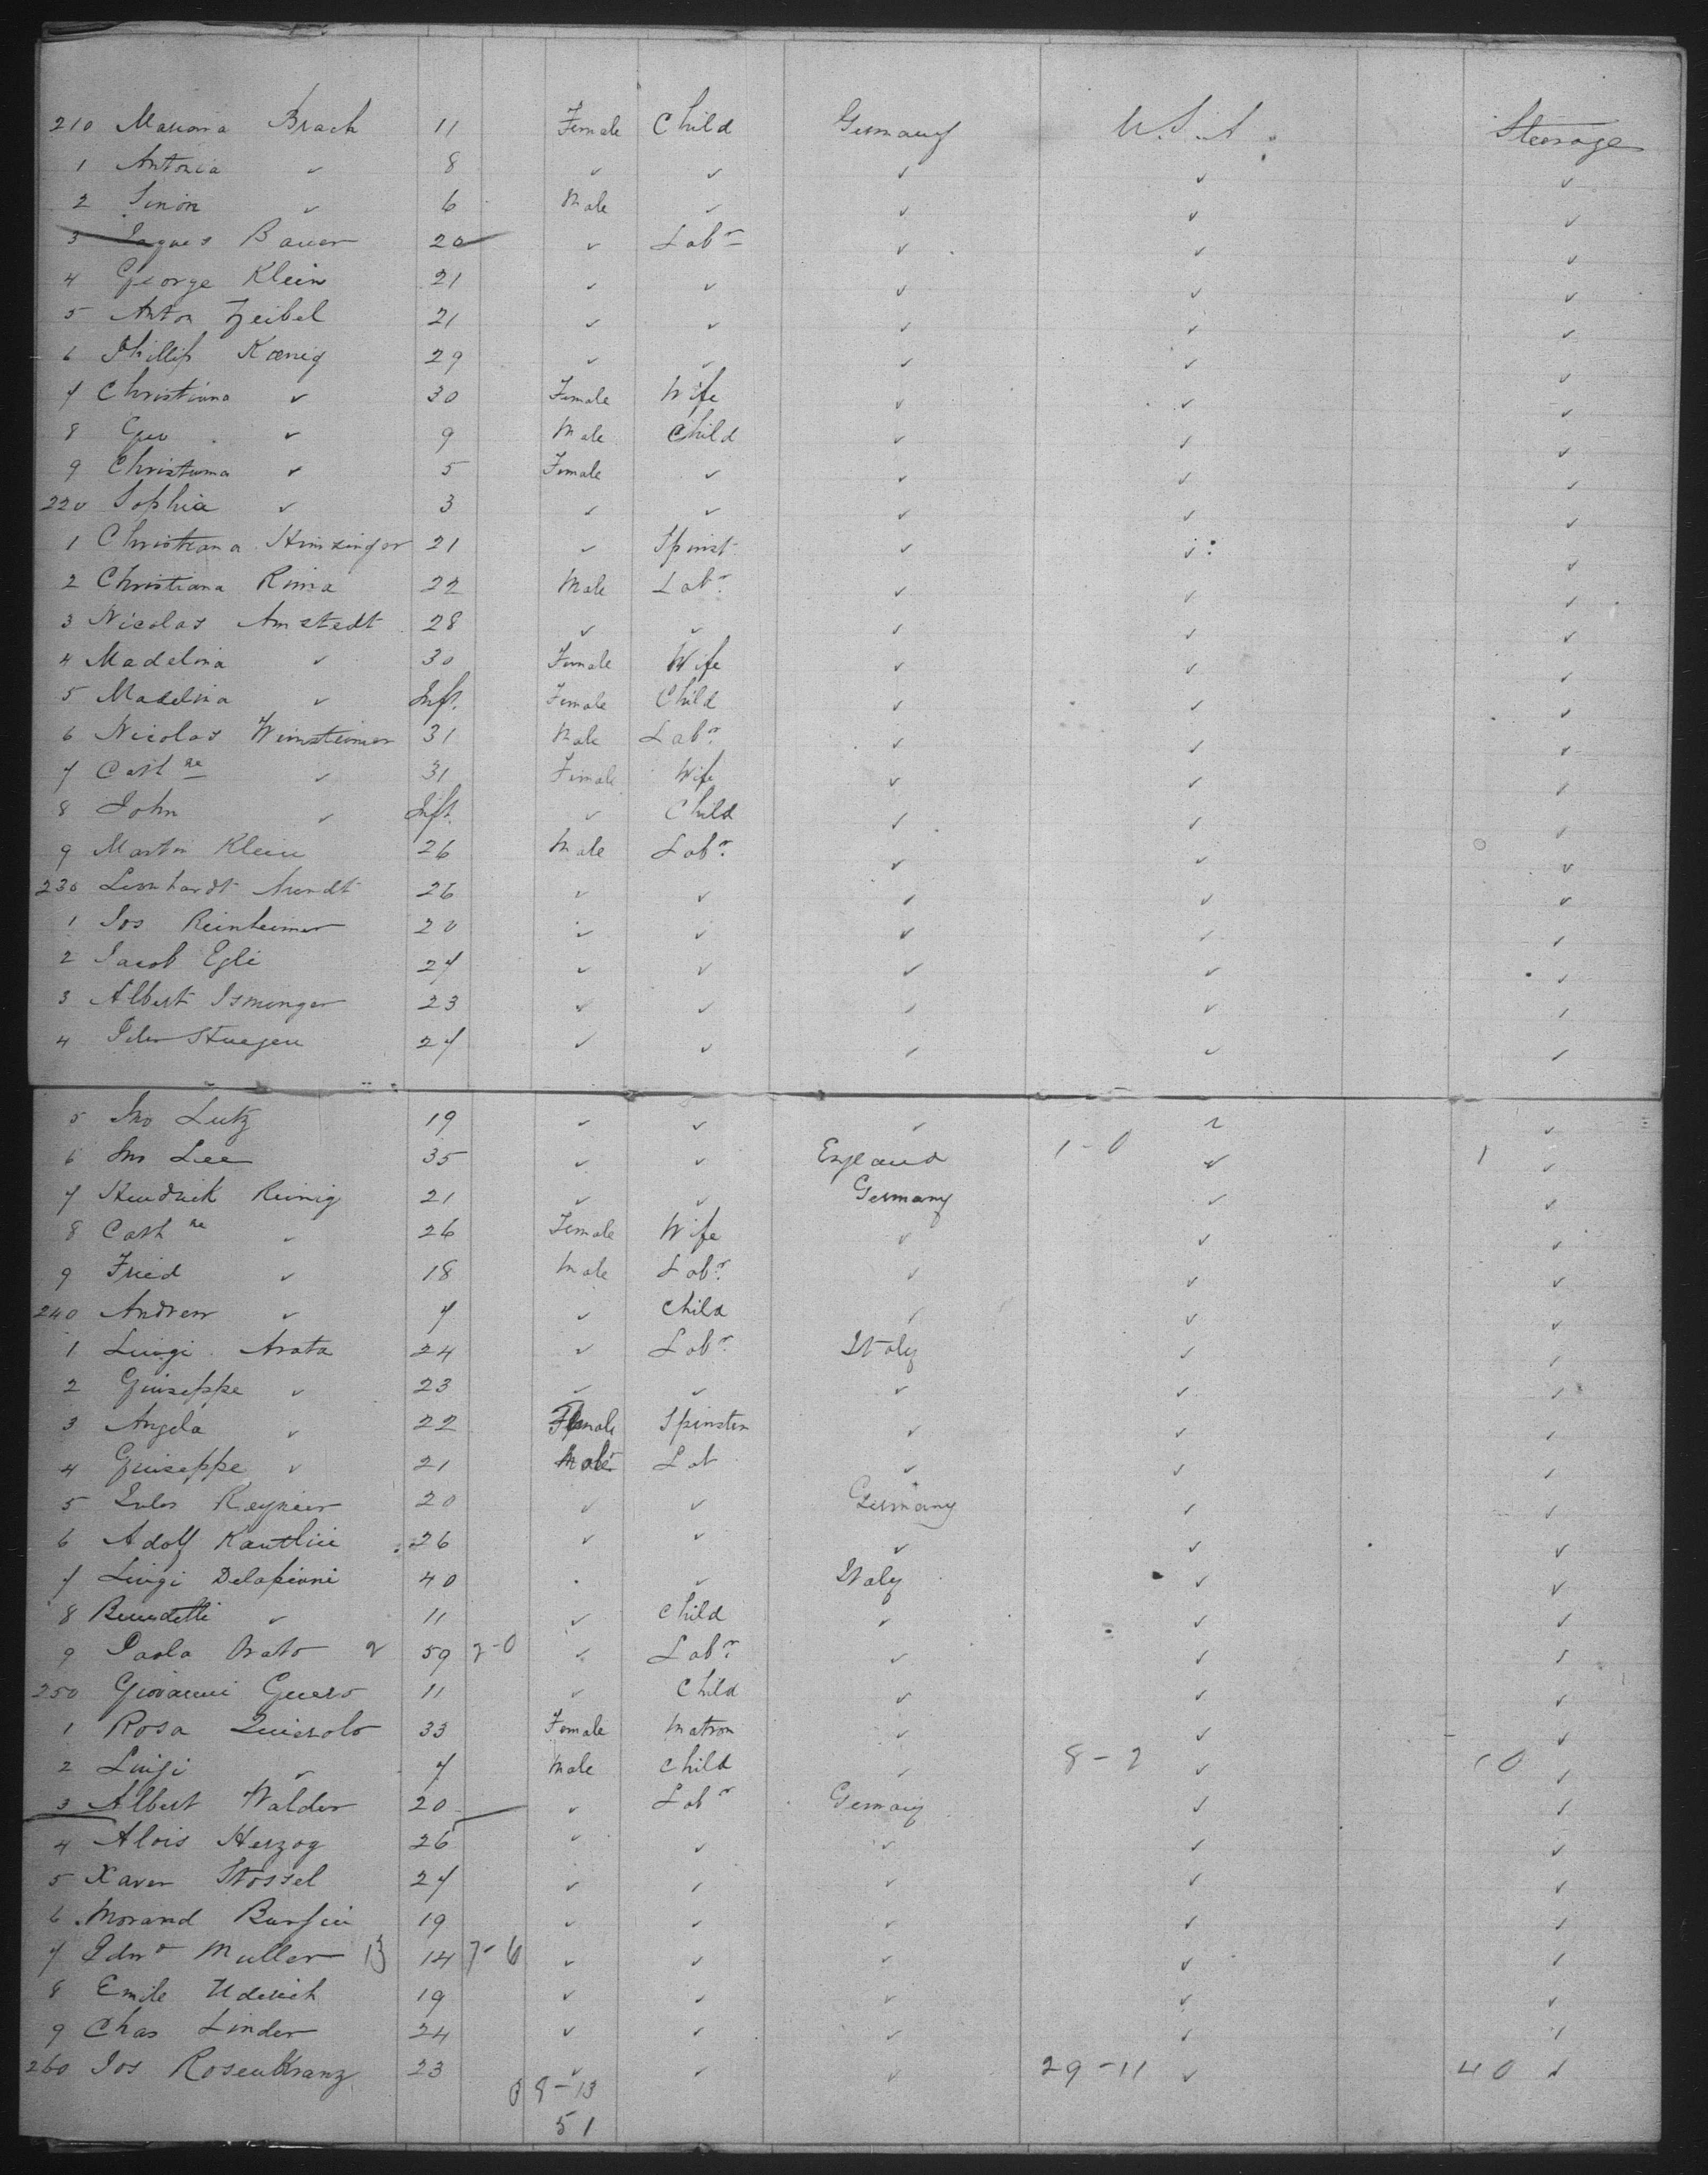 210 Mariana Brach 11 Female Child Germany U.S.A. Steerage
1 Antonia ✓ 8 ✓ ✓ ✓ ✓ ✓
2 Simon ✓ 6 Male ✓ ✓ ✓ ✓
3 Jaques Bauer 20 ✓ Labr ✓ ✓ ✓
4 George Klein 21 ✓ ✓ ✓ ✓ ✓
5 Anton Zeibel 21 ✓ ✓ ✓ ✓ ✓
6 Phillip Koenig 29 ✓ ✓ ✓ ✓ ✓
7 Christiana ✓ 30 Female Wife ✓ ✓ ✓
8 Geo ✓ 9 Male Child ✓ ✓ ✓
9 Christiana ✓ 5 Female ✓ ✓ ✓ ✓
220 Sophia ✓ 3 ✓ ✓ ✓ ✓ ✓
1 Christiana 21 ✓ Spinst ✓ ✓ ✓
2 Christiana Rima 22 Male Labr ✓ ✓ ✓
3 Nicolas Amstedt 28 ✓ ✓ ✓ ✓ ✓
4 Madelina ✓ 30 Female Wife ✓ ✓ ✓
5 Madelina ✓ Inft. Female Child ✓ ✓ ✓
6 Nicolas 31 Male Labr ✓ ✓ ✓
7 Cathne ✓ 31 Female Wife ✓ ✓ ✓
8 John ✓ Inft. ✓ Child ✓ ✓ ✓
9 Martin Klein 26 Male Labr ✓ ✓ ✓
230 Leonhardt Arendt 26 ✓ ✓ ✓ ✓ ✓
1 Jos Reinheimer 20 ✓ ✓ ✓ ✓ ✓
2 Jacob Egli 27 ✓ ✓ ✓ ✓ ✓
3 Albert Ismenger 23 ✓ ✓ ✓ ✓ ✓
4 Peter 27 ✓ ✓ ✓ ✓ ✓
5 Jno Lutz 19 ✓ ✓ ✓ ✓ ✓
6 Jno Lee 35 ✓ ✓ England 1-0 ✓ 1 ✓
7 Hendrick Reinig 21 ✓ ✓ Germany ✓ ✓
8 Cathne ✓ 26 Female Wife ✓ ✓ ✓
9 Fried ✓ 18 Male Labr ✓ ✓ ✓
240 Andrew ✓ 7 ✓ Child ✓ ✓ ✓
1 Luigi Arata 24 ✓ Labr Italy ✓ ✓
2 Guiseppe ✓ 23 ✓ ✓ ✓ ✓ ✓
3 Angela ✓ 22 Female Spinster ✓ ✓ ✓
4 Guiseppe ✓ 21 Male Lab ✓ ✓ ✓
5 Jules Reynier 20 ✓ ✓ Germany ✓ ✓
6 Adolf 26 ✓ ✓ ✓ ✓ ✓
7 Luigi Delapiani 40 ✓ Italy ✓ ✓
8 Benedetti ✓ 11 ✓ Child ✓ ✓ ✓
9 Paola 2 59 2-0 ✓ Labr ✓ ✓ ✓
250 Giovanni 11 ✓ Child ✓ ✓ ✓
1 Rosa 33 Female Matron ✓ ✓ ✓
2 Luigi ✓ 7 Male Child ✓ 8-2 ✓ 10 ✓
3 Albert Walder 20 ✓ Labr Germany ✓ ✓
4 Alois Herzog 26 ✓ ✓ ✓ ✓ ✓
5 Xaver Stossel 27 ✓ ✓ ✓ ✓ ✓
6 Morand 19 ✓ ✓ ✓ ✓ ✓
7 Edwd Muller 13 14 7-6 ✓ ✓ ✓ ✓ ✓
8 Emile 19 ✓ ✓ ✓ ✓ ✓
9 Chas Linder 24 ✓ ✓ ✓ ✓ ✓
260 Jos Rosenkranz 23 ✓ ✓ ✓ 29-11 ✓ 40 ✓
8-13
51